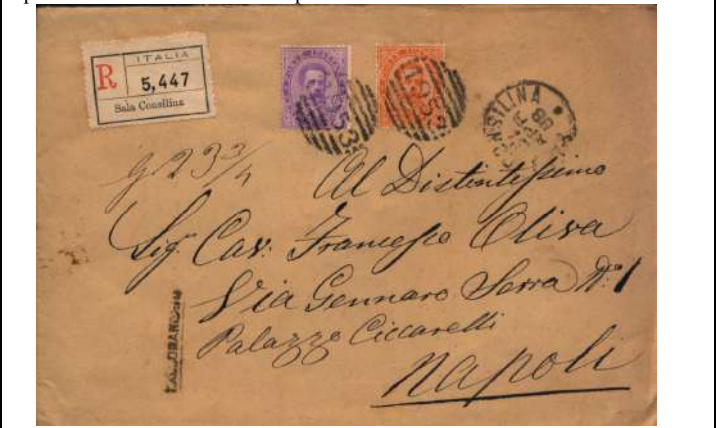 ITALIA
R 5,447
Sala Consilina
1953
1953
CONSILINA
88
g 23 3/4
Al Distintissimo
Sig. Cav: Francesco Oliva
Via Gennaro Serra N: 1
Palazzo Ciccarelli
Napoli